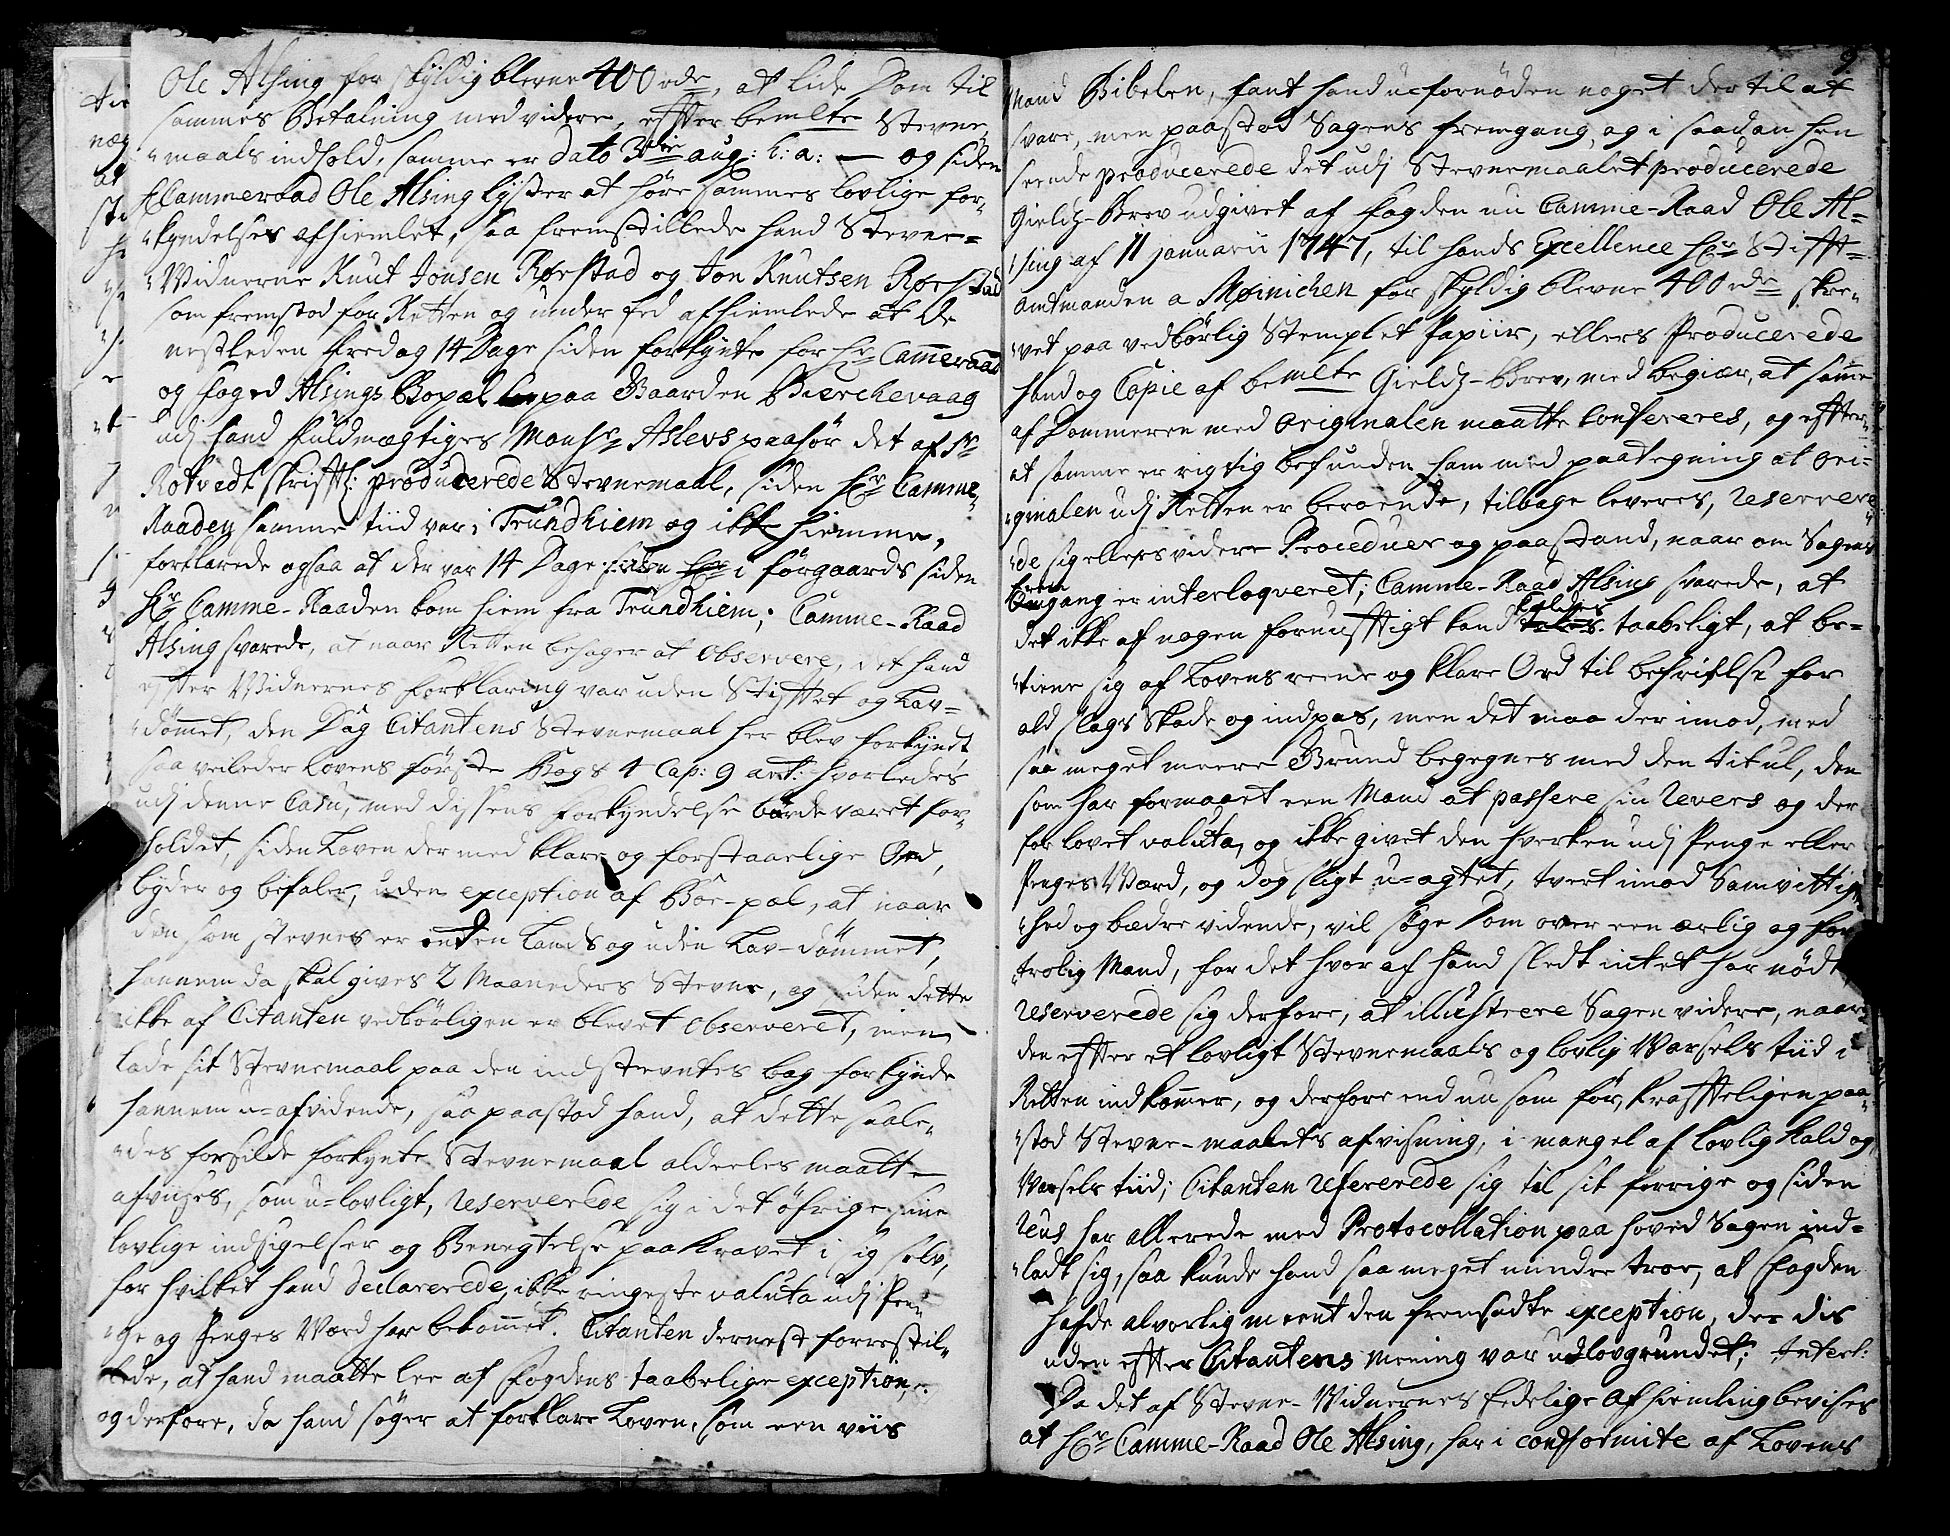 Ole Alsing for skÿldig blevne 400 rde, at lide Dom til
sammes Betalning med videre, efter bemlte Stevne-
maals indhold, samme er dato 3die aug: h: a: — og siden
Cammeraad Ole Alsing lyster at høre sammes lovlige for-
kyndelses afhiemlet, saa fremstillede hand Stevne-
Vidnerne Knut Jonsen Rørstad og Jon Knutsen Rørstad
som fremstod for Retten og under Eed afhiemlede at de
nestleden fredag 14 Dage siden forkynte for Hr Cammeraad
og Foged Alsings Bopæl paa Gaarden Bierchevaag
udj hand fuldmægtiges Monsr Aslevs paahør det af Sr
Rotvedt skriftl: producerede Stevnemaal, siden Hr Camme-
Raaden samme tiid var i Trundhiem og ikke hiemme,
forklarede ogsaa at der var 14 Dage siden i førgaards siden
Hr Camme-Raaden kom hiem fra Trundhiem; Camme-Raad
Alsing svarede, at naar Retten behager at observere, det hand
efter Vidnernes forklaring var uden Stiftet og Lav-
dømmet, den Dag Citantens Stevnemaal her blev forkyndt
saa veileder Lovens første Bogs 4 Cap: 9 art: hvorledes
udj denne Casu, med dissens forkyndelse burde været for-
holdet, siden Loven der med klare og forstaaelige Ord,
byder og befaler, uden exception af Boe-pæl, at naar
den som stevnes er inden Lands og uden Lav-dømmet,
hannem da skal gives 2 Maaneders Stevne, og siden dette
ikke af Citanten vedbørligen er blevet observeret, men
lade sit Stevnemaal paa den indstevntes bag forkynde
hannem u-afvidende, saa paastod hand, at dette saale-
des forsilde forkynte Stevnemaal aldeeles maatte
afvises, som u-lovligt, reserverede sig i det øfrige sine
lovlige indsigelser og Benegtelse paa Kravet i sig selv,
for hvilket hand declarerede, ikke ringeste valuta udj Pen-
ge og Penges Værd har bekommet. Citanten dernest forrestil-
lede, at hand maatte lee af Fogdens taabelige exception,
og derfore, da hand søger at forklare Loven, som een viis
9
Mand Bibelen, fant hand ufornøden noget der til at
svare, men paastod Sagens fremgang, og i saadan hen
seende producerede det udj Stevnemaalet producerede
Gieldz-Brev udgivet af fogden nu Camme-Raad Ole Al-
sing af 11 januarii 1747, til hands Excellence Hr Stift-
amtmanden a Møinichen for skyldig blevne 400 rde skre-
vet paa vedbørlig Stemplet Papiir, ellers Producerede
hand og Copie af bemlte Gieldz-Brev, med begiær, at samme
af Dommeren med originalen maatte Confereres, og efter
at samme er rigtig befunden, ham med paategning at ori-
ginalen udj Retten er beroende, tilbage leveres, reservere-
de sig ellers videre Proceduer og paastand, naar om Sagens
frem
gang er interloqveret; Camme-Raad Alsing svarede, at
det ikke af nogen fornufftigt kand kaldes taabeligt, at be-
tiene sig af Lovens reene og klare Ord til befrielse for
ald slags Skade og indpas, men det maa der imod, med
saa meget meere Grund begegnes med den titul, den
som har formaaet een Mand at passere sin revers og der
for lovet valuta, og ikke givet den hverken udj Penge eller
Penges Værd, og dog sligt u-agtet, tvert imod Samvittig-
hed og bædre vidende, vil søge Dom over een ærlig og for
trolig Mand, for det hvor af hand sledt intet har nødt
reserverede sig derfore, at illustrere Sagen videre, naar
den efter et lovligt Stevnemaals og lovlig Varsels tiid i
Retten indkommer, og derfore end nu som før, kraffteligen paa-
stod Stevne-maalets afvisning, i mangel af lovlig Kald og
Varsels tiid; Citanten refererede sig til sit forrige og siden
reus har allerede med Protocollation paa hoved Sagen ind-
ladt sig, saa kunde hand saa meget mindre troe, at Fogden
hafde alvorlig meent den fremsadte exception, der des
uden efter Citantens mening var udlovgrundet; Interl:
Da det af Stevne-Vidnernes Eedelige afhiemling bevises
at Hr Camme-Raad Ole Alsing, har i conformite af Lovens